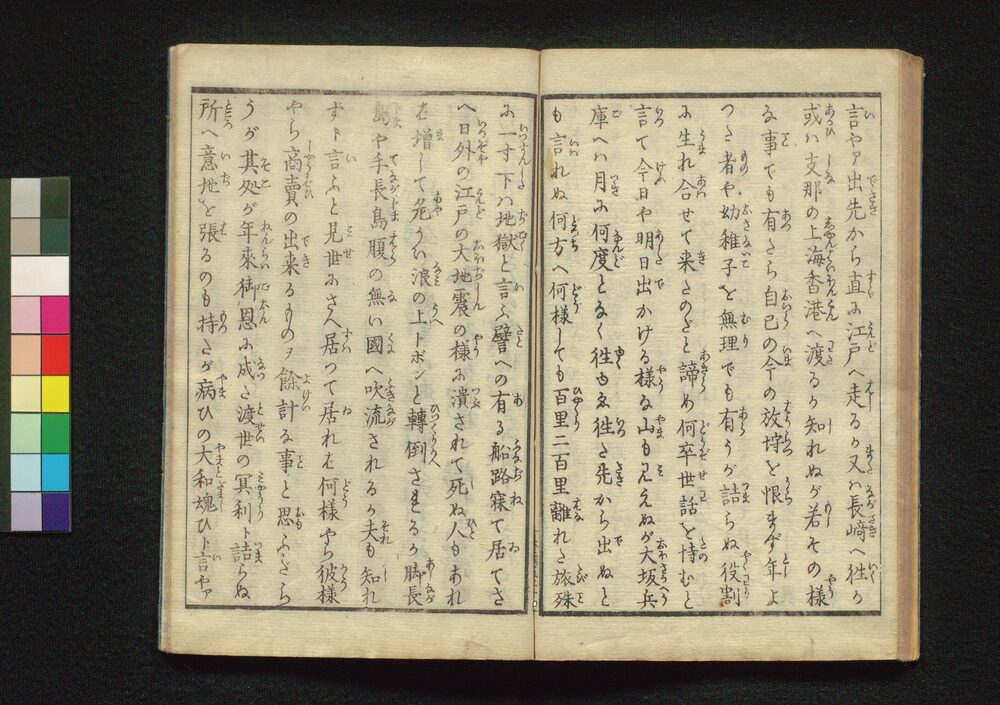 言やァ出先から直に江戸へ走るか又ハ長崎へ徃か
或ハ支那の上海香港へ渡るか知れぬが若その様
な事でも有たら自己の今の放埒を恨まず年よ
つた者や幼稚子を無理でも有うが詰らぬ役割
に生れ合せて来たのだと諦め何卒世話を恃むと
言て今日や明日出かける様な山も見えぬが大坂兵
庫へハ月に何度となく徃も徃た先から出ぬと
も言れぬ何方へ何様しても百里二百里離れた旅殊
に一寸下ハ地獄と言ふ譬への有る船路寐て居てさ
へ日外の江戸の大地震の様に潰されて死ぬ人もあれ
ば増して危うい浪の上ドボンと轉倒さまるか脚長
島や手長島腹の無い國へ吹流されるか夫も知れ
すト言ふと見世にさへ居つて居れば何様やら彼様
やら商賣の出来るものヲ餘計な事と思ふだら
うが其処が年来御恩に成た渡世の冥利ト詰らぬ
所へ意地を張るのも持たが病ひの大和魂ひト言やァ